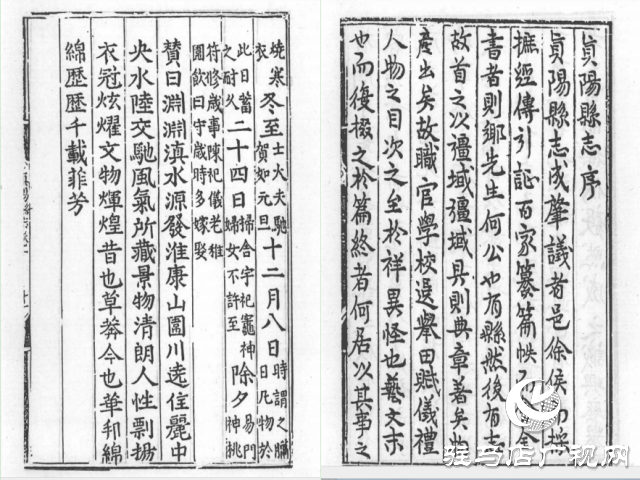 真陽縣志序
真陽縣志成肇議者邑徐侯而操
摭經傳引証百家纂篇帙
書者則鄉先生何公也有縣然後有志
故首之以疆域疆域具則典章著矣物
產出矣故職官學校選舉田賦儀禮
人物之目次之至於祥異怪也藝文末
也而復掇之於篇終者何居以其事之
燒寒衣冬至士大夫馳賀如元旦十二月八日時謂之臘日凡物於
此日蓄之耐久二十四日掃舍宇祀竈神婦女不許至除夕易門神桃
符修歲事陳祀儀老稚圍飲曰守歲時多嫁娶
贊曰淵淵滇水源發淮康山圍川遶佳麗中
央水陸交馳風氣所藏景物清朗人性剽揚
衣冠炫耀文物輝煌昔也草莽今也華邦綿
綿歷歷千載菲芳
驻马店广视网